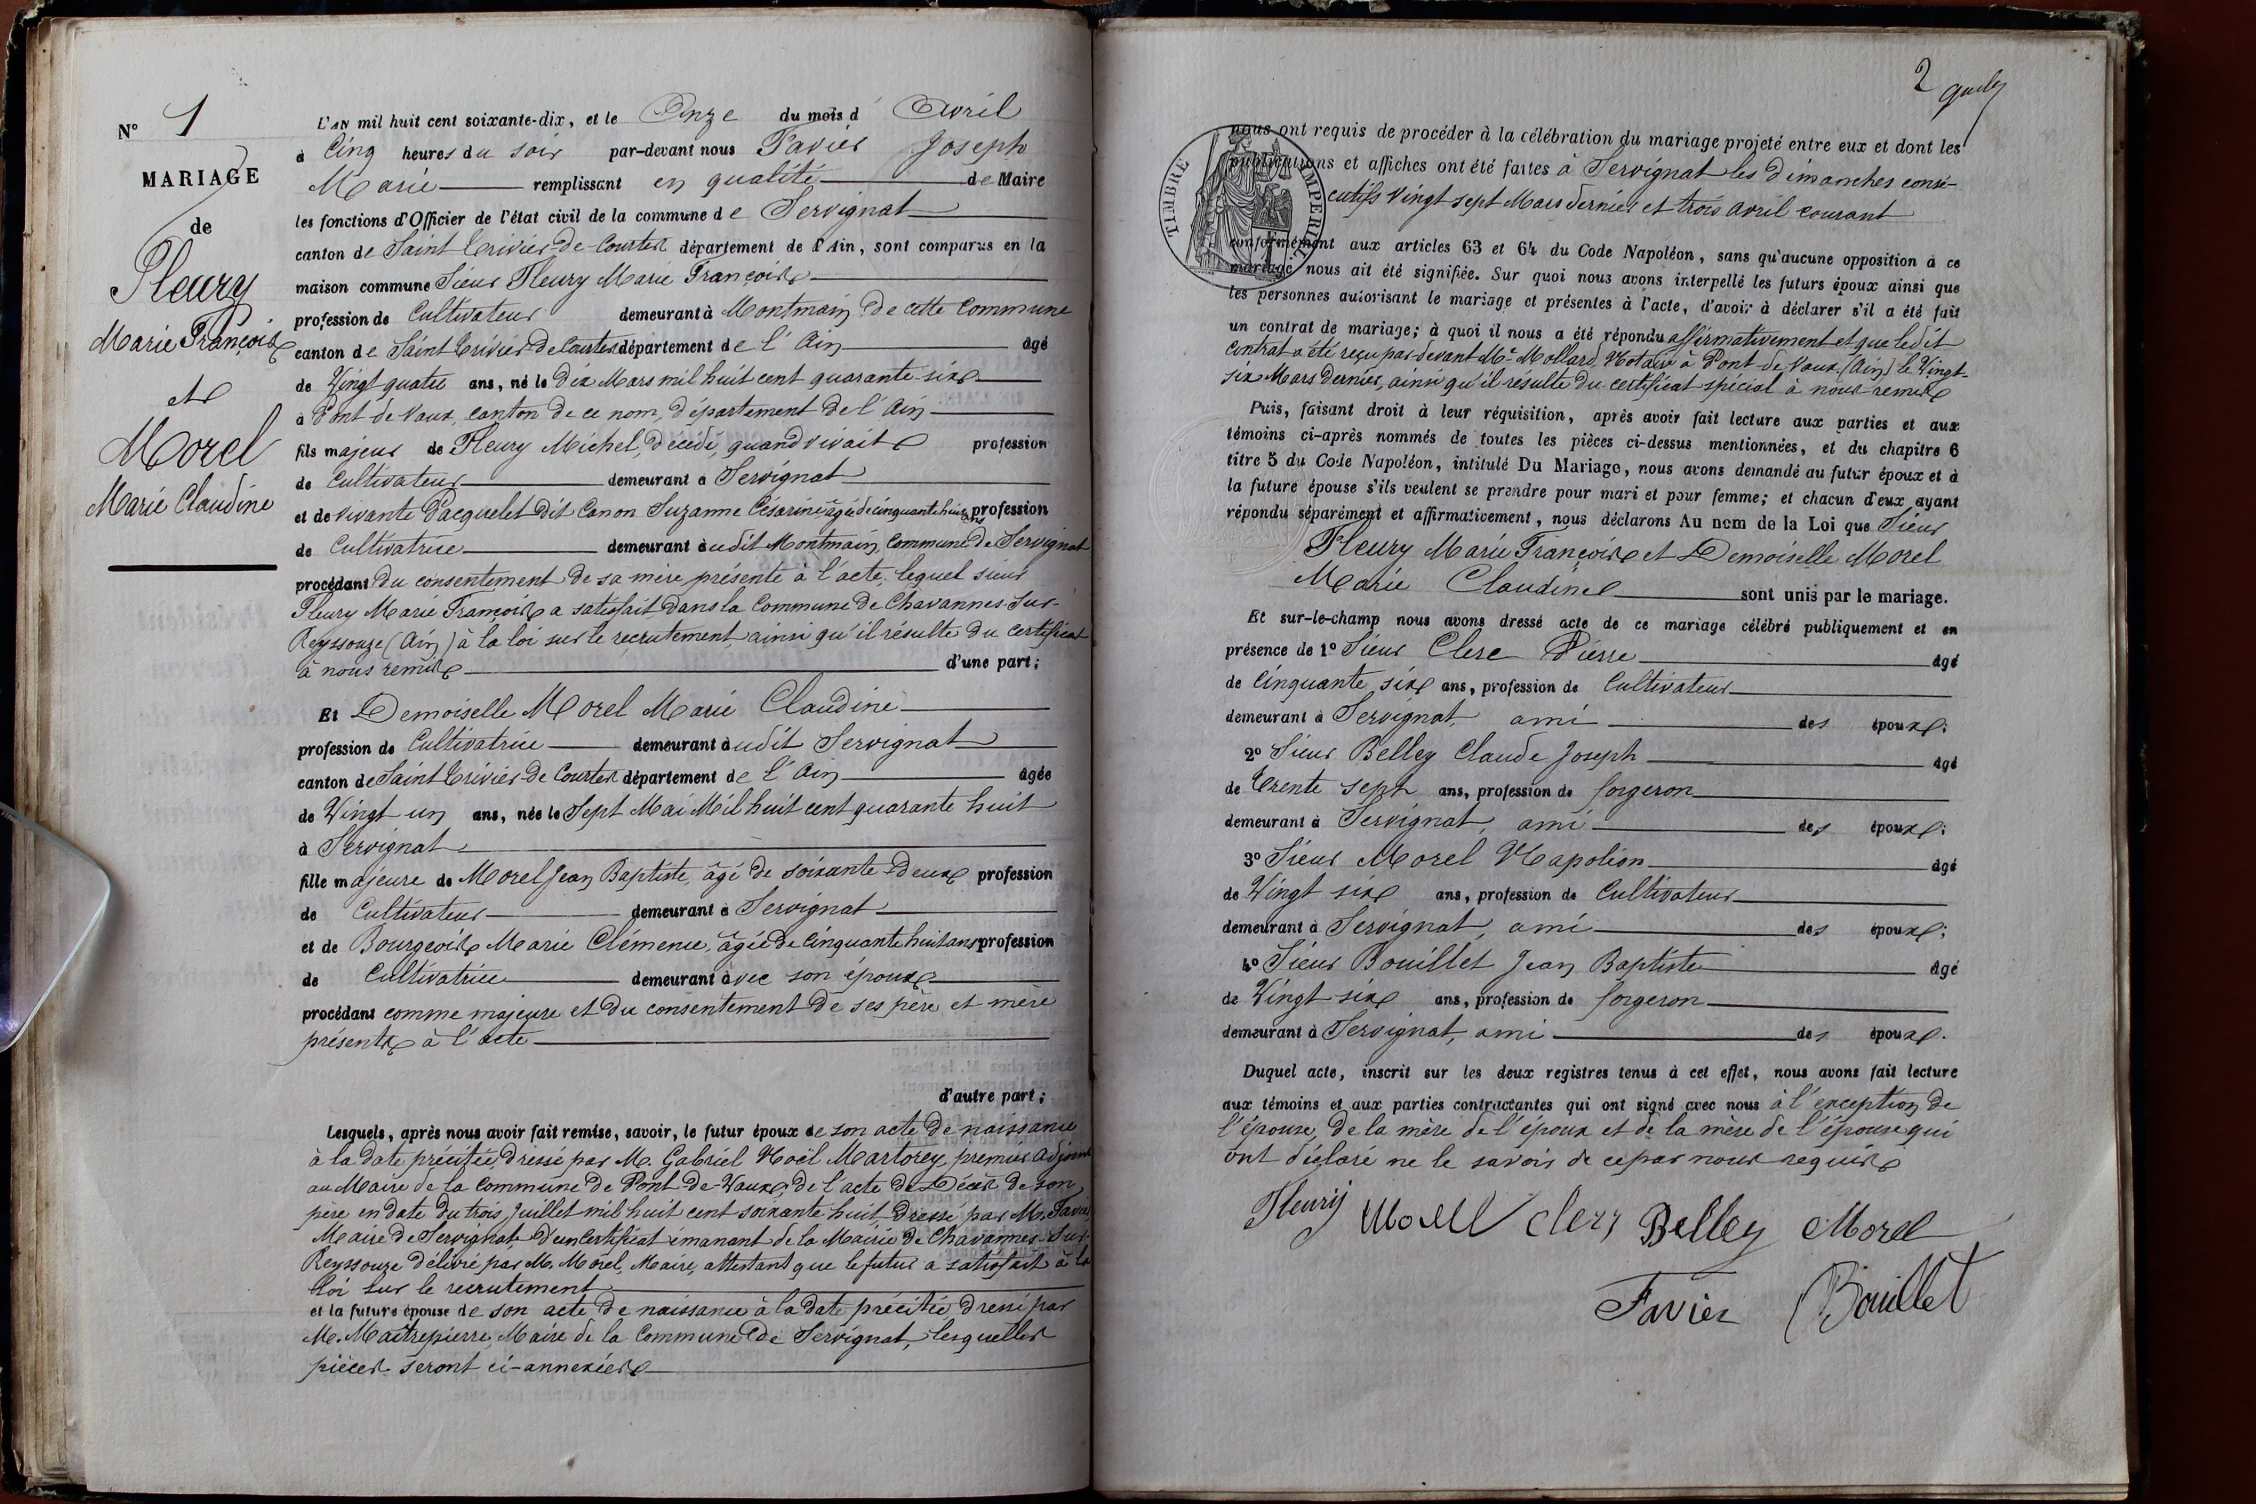 N° 1
MARIAGE
de
Fleury
Marie François
et
Morel
Marie Claudine
L'AN mil huit cent soixante-dix, et le Onze du mois d' Avril
à Cinq heures du soir par-devant nous Favier Joseph
Marie remplissant en qualité de Maire
les fonctions d'Officier de l'état civil de la commune de Servignat
canton de Saint Trivier-de-Courtes département de l'Ain, sont comparus en la
maison commune Sieur Fleury Marie François
profession de Cultivateur demeurant à Montmain de cette Commune
canton de Saint Trivier-de Courtes département de l'Ain âgé
de Vingt quatre ans, né le Dix Mars mil huit cent quarante-six
à Pont de Vaux, canton de ce nom, département de l'Ain
fils majeur de Fleury Michel, décédé, quand vivait profession
de Cultivateur demeurant à Servignat
et de vivante Pacquelet dit Canon Suzanne Césarine âgée de cinquante huit ans profession
de Cultivatrice demeurant audit Montmain, Commune de Servignat
procédant du consentement de sa mère présente à l'acte, lequel sieur
Fleury Marie François a satisfait dans la Commune de Chavannes-sur-
Reyssouze (Ain) à la loi sur le recrutement, ainsi qu'il résulte du certificat
à nous remis d'une part;
Et Demoiselle Morel Marie Claudine
profession de Cultivatrice demeurant audit Servignat
canton de Saint Trivier-de Courtes département de l'Ain âgée
de Vingt un ans, née le Sept Mai Mil huit cent quarante huit
à Servignat
fille majeure de Morel Jean Baptiste, âgé de soixante-deux profession
de Cultivateur demeurant à Servignat
et de Bourgeois Marie Clémence, âgée de Cinquante huit ans profession
de Cultivatrice demeurant avec son époux
procédant comme majeure et du consentement de ses père et mère
présents à l'acte
d'autre part;
Lesquels, après nous avoir fait remise, savoir, le futur époux de son acte de naissance
à la date précitée, dressé par M. Gabriel Noël Martorey, premier adjoint
au Maire de la Commune de Pont-de-Vaux, de l'acte de Décès de son
père en date du trois Juillet mil huit cent soixante huit dressé par M. Favier,
Maire de Servignat, d'un Certificat émanant de la Mairie de Chavannes-sur-
Reyssouze délivré par M. Morel, Maire, attestant que le futur a satisfait à la
Loi sur le recrutement
et la future épouse de son acte de naissance à la date précitée dressé par
M. Maitrepierre, Maire de la Commune de Servignat, lesquelles
pièces seront ci-annexées
2
TIMBRE IMPERIAL
nous ont requis de procéder à la célébration du mariage projeté entre eux et dont les
publications et affiches ont été faites à Servignat les dimanches consé-
cutifs vingt sept Mars dernier et trois avril courant
conformément aux articles 63 et 64 du Code Napoléon, sans qu'aucune opposition à ce
mariage nous ait été signifiée. Sur quoi nous avons interpellé les futurs époux ainsi que
les personnes autorisant le mariage et présentes à l'acte, d'avoir à déclarer s'il a été fait
un contrat de mariage; à quoi il nous a été répondu affirmativement et que ledit
Contrat a été reçu par-devant Me Mollard, Notaire à Pont-de-Vaux (Ain) le Vingt-
six Mars dernier, ainsi qu'il résulte du certificat spécial à nous remis
Puis, faisant droit à leur réquisition, après avoir fait lecture aux parties et aux
témoins ci-après nommés de toutes les pièces ci-dessus mentionnées, et du chapitre 6
titre 5 du Code Napoléon, intitulé Du Mariage, nous avons demandé au futur époux et à
la future épouse s'ils veulent se prendre pour mari et pour femme; et chacun d'eux ayant
répondu séparément et affirmativement, nous déclarons Au nom de la Loi que Sieur
Fleury Marie François et Demoiselle Morel
Marie Claudine sont unis par le mariage.
Et sur-le-champ nous avons dressé acte de ce mariage célébré publiquement et en
présence de 1° Sieur Clerc Pierre âgé
de Cinquante six ans, profession de Cultivateur
demeurant à Servignat, ami des époux;
2° Sieur Belley Claude Joseph âgé
de Trente sept ans, profession de forgeron
demeurant à Servignat, ami des époux;
3° Sieur Morel Napoléon âgé
de Vingt six ans, profession de Cultivateur
demeurant à Servignat, ami des époux;
4° Sieur Bouillet Jean Baptiste âgé
de Vingt-six ans, profession de forgeron
demeurant à Servignat, ami des époux.
Duquel acte, inscrit sur les deux registres tenus à cet effet, nous avons fait lecture
aux témoins et aux parties contractantes qui ont signé avec nous à l'exception de
l'épouse, de la mère de l'époux et de la mère de l'épouse qui
ont déclaré ne le savoir de ce par nous requis
Fleury Morel Clerc Belley Morel
Favier Bouillet